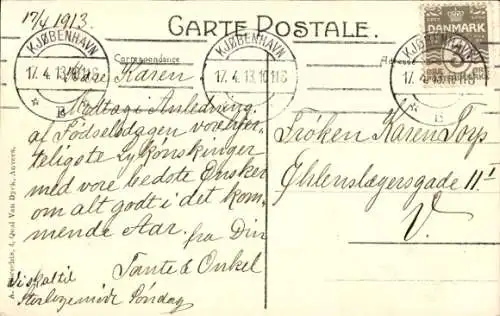 17/4 1913.
CARTE POSTALE.
DANMARK
3
KJØBENHAVN
17. 4. 13. 10-11 S
* B *
KJØBENHAVN
17. 4. 13. 10-11 S
KJØBENHAVN
17. 4. 13. 10-11 S
* B
Correspondance
Adresse
Kære Karen
Modtag i Anledning
af Fødselsdagen vore hjer-
teligste Lykønskninger
med vore bedste Ønsker
om alt godt i det kom-
mende Aar. fra Din
Tante & Onkel
Vi skal til
Søndag
Frøken Karen
Øhlenslægersgade 11 I
V.
4, Quai Van Dyck, Anvers.